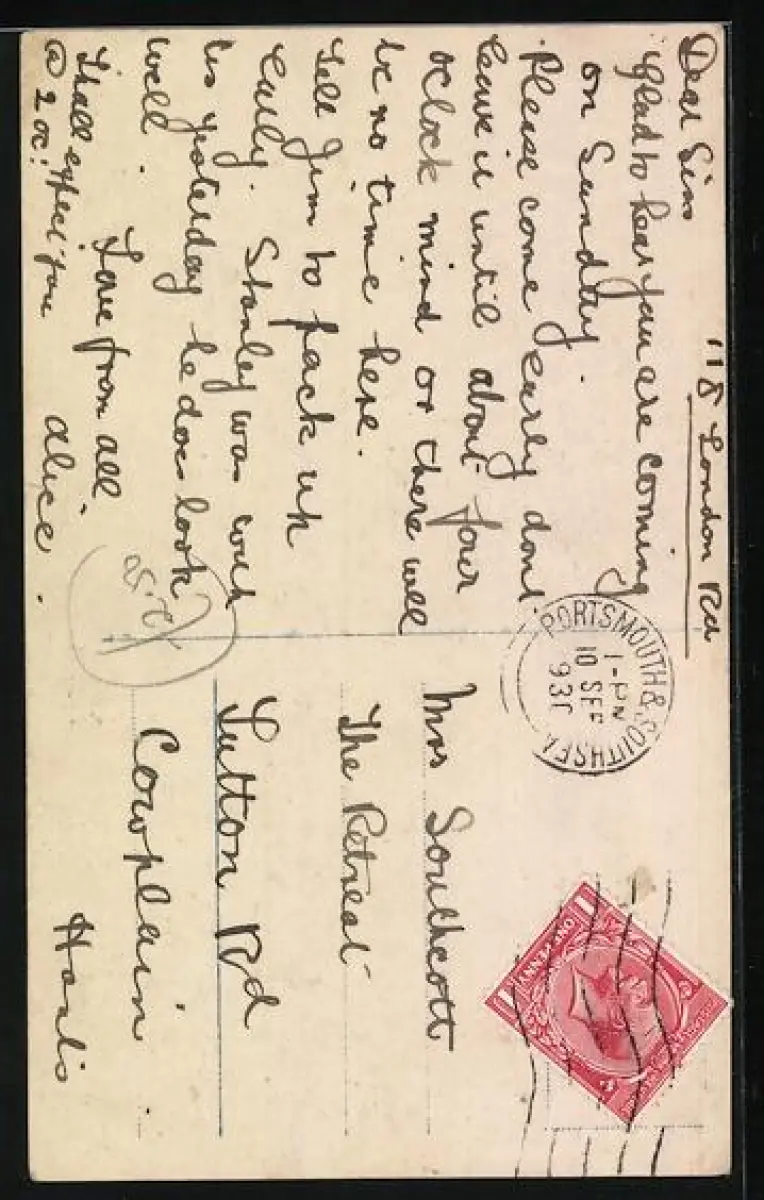 118 London Rd
Dear Sins
Glad to hear you are coming
on Sunday.
Please come early dont
leave it until about four
oclock mind or there will
be no time here.
Tell Jim to pack up
early. Stanley was with
us yesterday he does look
well.
Love from all
Shall expect you
@ 2 oc. Alice.
PORTSMOUTH & SOUTHSEA
1-PM
10 SEP
930
ONE PENNY
Mrs Southcott
The Retreat
Sutton Rd
Cowplain
Hants